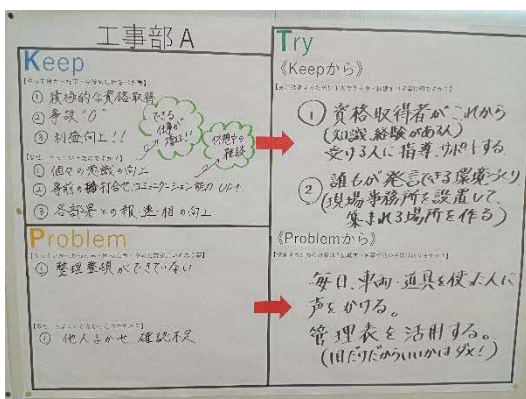 工事部A
Keep
① 積極的な資格取得
② 事故 "0"
③ 利益向上!!
できる
仕事が
増えた!!
休憩中の
雑談
① 個々の意識の向上
② 事前の打合せ、コミュニケーション能力 UP↑
③ 各部署との報・連・相の向上
Problem
① 整理整頓ができていない
① 他人まかせ 確認不足
Try
《Keepから》
① 資格取得者がこれから
(知識、経験がある人)
受ける人に指導、サポートする
② 誰もが発言できる環境づくり
(現場事務所を設置して、
集まれる場所を作る)
《Problemから》
毎日、車両・道具を使った人に
声をかける。
管理表を活用する。
(1日だけだからいいかはダメ!)